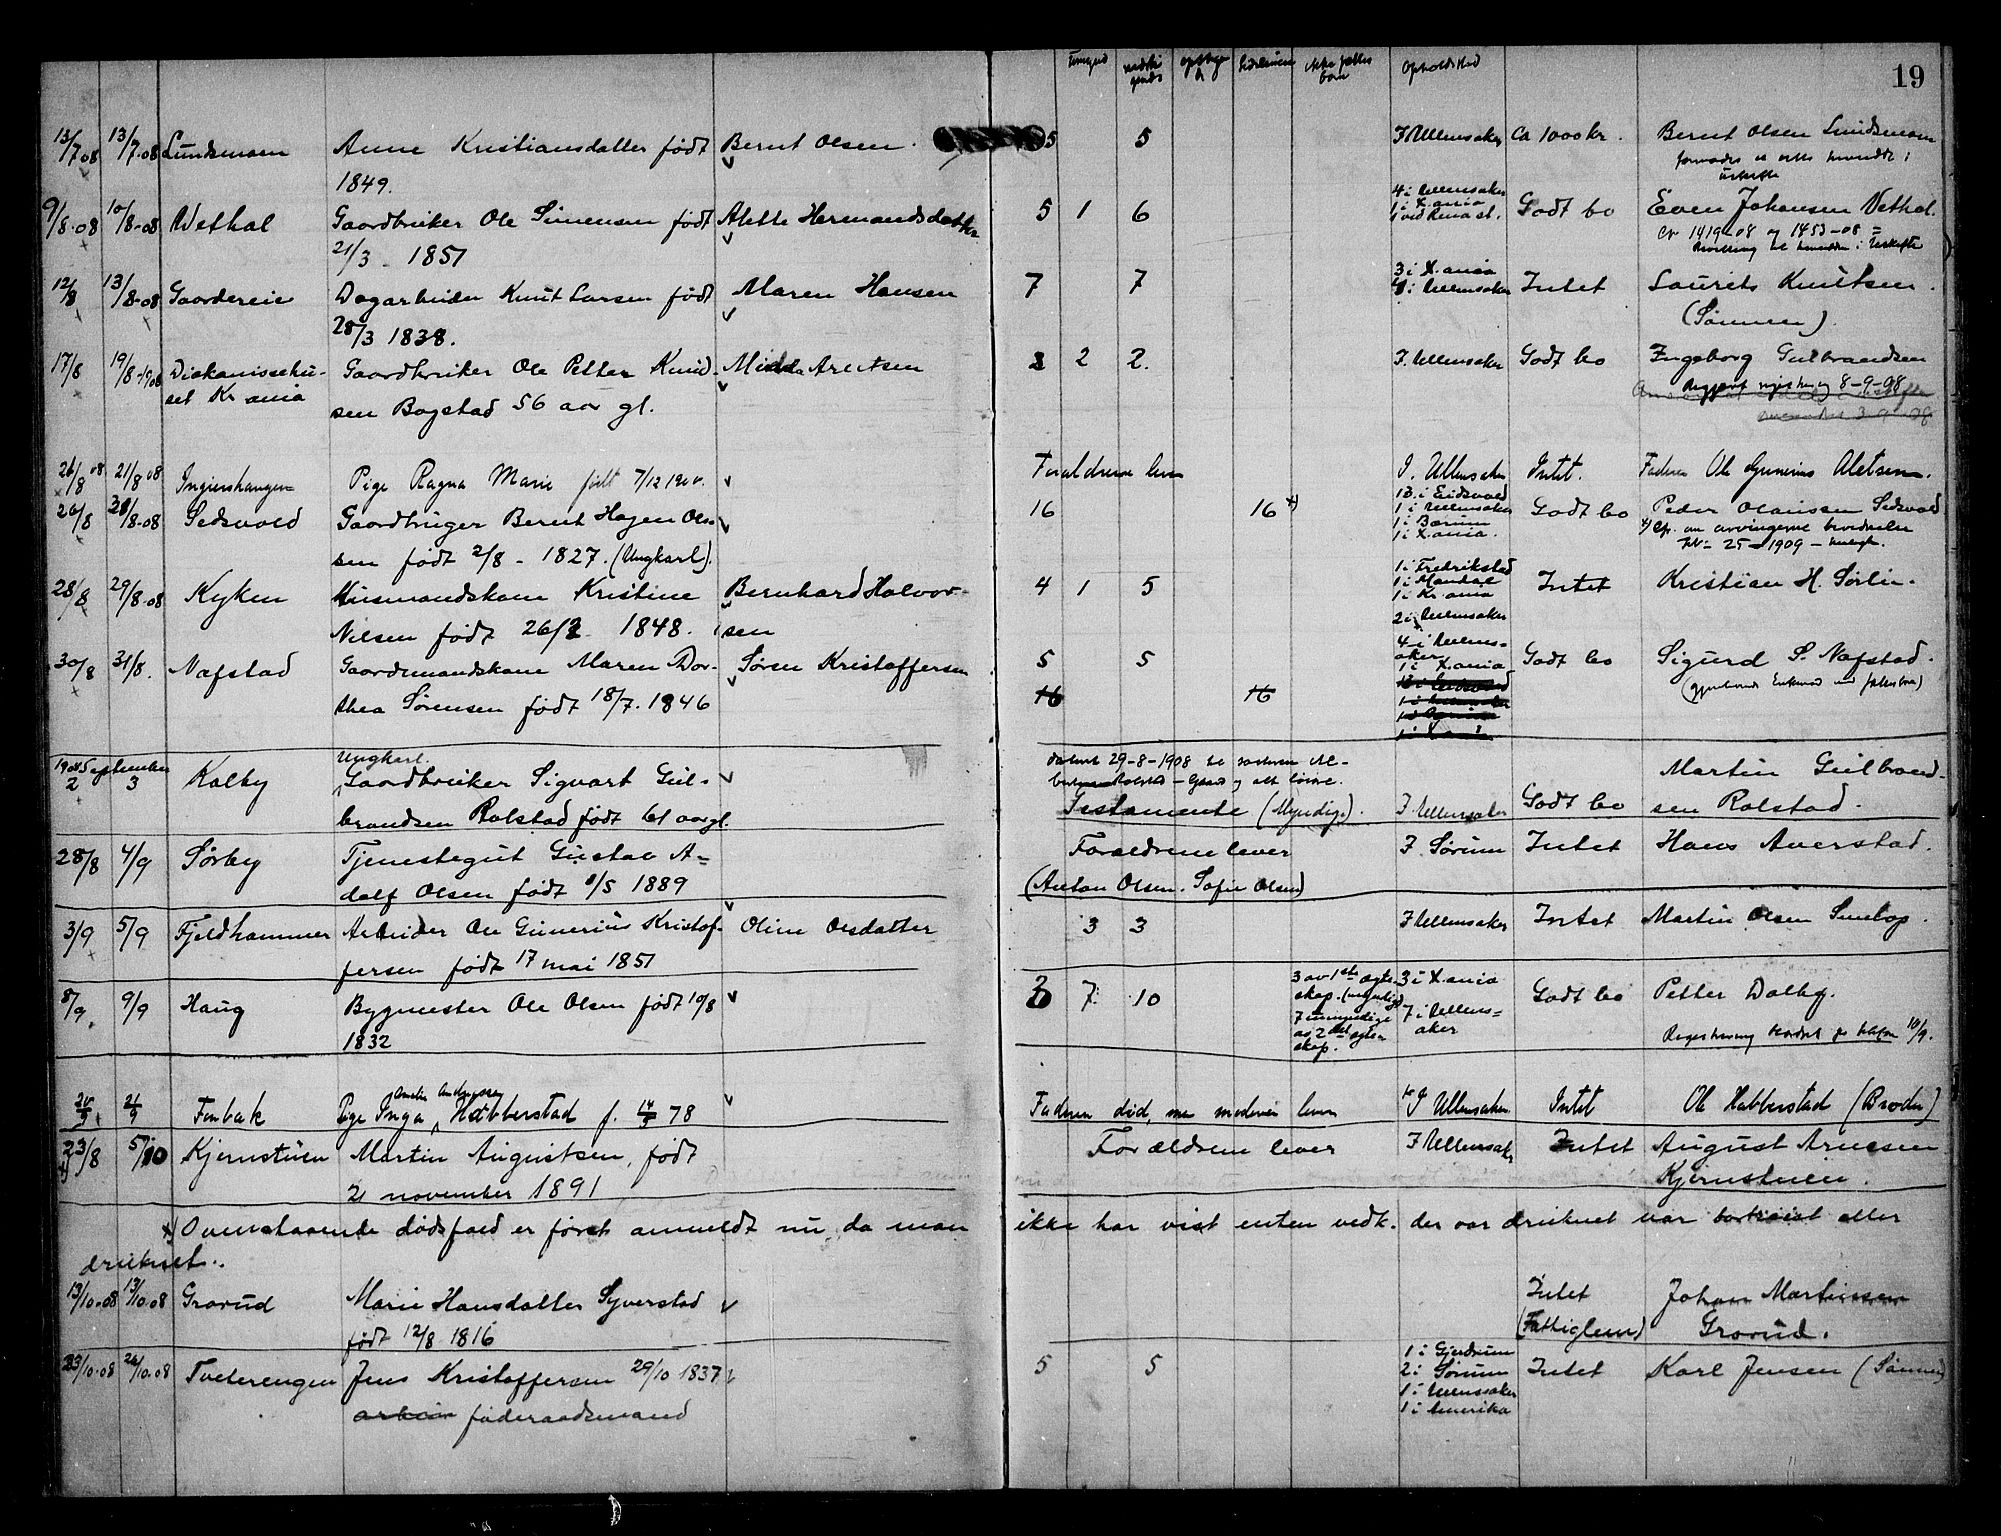 19
umynd. nedsti- gende opstige- de Sidelinien ikke fælles barn Opholdssted
13/7 08 13/7-08 Lundsmoen Anne Kristiansdatter født Bernt Olsen. 5 5 I Ullensaker Ca 1000 kr. Bernt Olsen Lundsmoen
1849.
9/8-08 10/8-08 Wethal Gaardbruker Ole Simensen født Alette Hermandsdatter 5 1 6 4 i Ullensaker Godt bo Even Johansen Vethal.
1 i X.ania
1 ved Rena st.
21/3 - 1851 1419-08 og 1453-08 =
12/8 13/8-08 Gaardereie Dagarbeider Knut Larsen født Maren Hansen 7 7 3 i X.ania Intet Laurits Knutsen.
4 i Ullensaker
28/3 1838. (Sønnen).
17/8 19/8-1908 Diakonissehu- Gaardbruker Ole Petter Knud- Midda Arntsen 2 2. I. Ullensaker Godt bo Ingeborg Gulbrandsen
set Kr.ania sen Bogstad 56 aar gl. 8-9-08
26/8 08 21/8 08 Ingiershaugen Pige Ragna Marie født 7/12 1900. Forældrene lever I. Ullensaker Intet. Faderen Ole Gunerius Aletsen.
26/8 31/8-08 Sedsvold Gaardbruger Bernt Hagen Ol- 16 16 x) 13 i Eidsvold Godt bo Peder Olaussen Sedsvold
1 i Ullensaker
1 i Bærum
1 i X.ania.
sen født 2/8 - 1827. (Ungkarl). 25-1909
28/8 29/8-08 Kyken Husmandskone Kristine Bernhard Halvor- 4 1 5 1 i Fredrikstad Intet Kristian H. Sørlie.
1 i Mandal
1 i Kr.ania
Nilsen født 26/2 - 1848. sen 2 i Ullensaker
30/8 31/8. Nafstad Gaardmandskone Maren Dor- Søren Kristoffersen 5 5 4 i Ullens- Godt bo Sigurd S. Nafstad.
aker
1 i X.ania
thea Sørensen født 18/7. 1846 16 16
1908 September Ungkarl. datert 29-8-1908
2 3 Kalby Gaardbruker Sigvart Gul- Martin Gulbrand-
brandsen Ralstad født 61 aar gl. Testamente (Myndige). I Ullensaker Godt bo sen Ralstad.
28/8 4/9 Sørby Tjenestegut Gustav A- Forældrene lever I. Sørum Intet Hans Averstad.
dolf Olsen født 8/5 1889 (Anton Olsen. Sofie Olsen)
3/9 5/9 Fjeldhammer Arbeider Ole Gunerius Kristof- Oline Olsdatter 3 3 I Ullensaker Intet Martin Olsen
fersen født 17 mai 1851
8/9. 9/9 Haug Bygmester Ole Olsen født 10/8 3 7 10 3 av 1ste ægte- 3 i X.ania Godt bo Petter Dalby.
skap. (myndige)
7 umyndige 7 i Ullens-
av 2det ægte- aker
skap.
1832 10/9.
20/9 21/9 Fenbak Pige Inga Amalie Andersen Habberstad f. 14/5 78 Faderen død, men moderen lever I Ullensaker Intet Ole Habberstad (Broder)
23/8 5/10 Kjernstuen Martin Augustsen, født Forældrene lever I Ullensaker Intet August Arnesen
x) 21 november 1891 Kjernstuen.
x) Ovenstaaende dødsfald er først anmeldt nu, da man ikke har vist enten vedk. der var druknet var bortreist eller
druknet..
13/10-08 13/10.08 Grorud Marie Hansdatter Syverstad Intet Johan Martinsen
født 12/8 1816 (Fattiglem) Grorud.
23/10-08 26/10.08 Tveterengen Jens Kristoffersen 29/10 1837 5 5 1 i Gjerdrum Intet Karl Jensen (Sønnen)
2 i Sørum
1 i Ullensaker
føderaadsmand 1 i Amerika